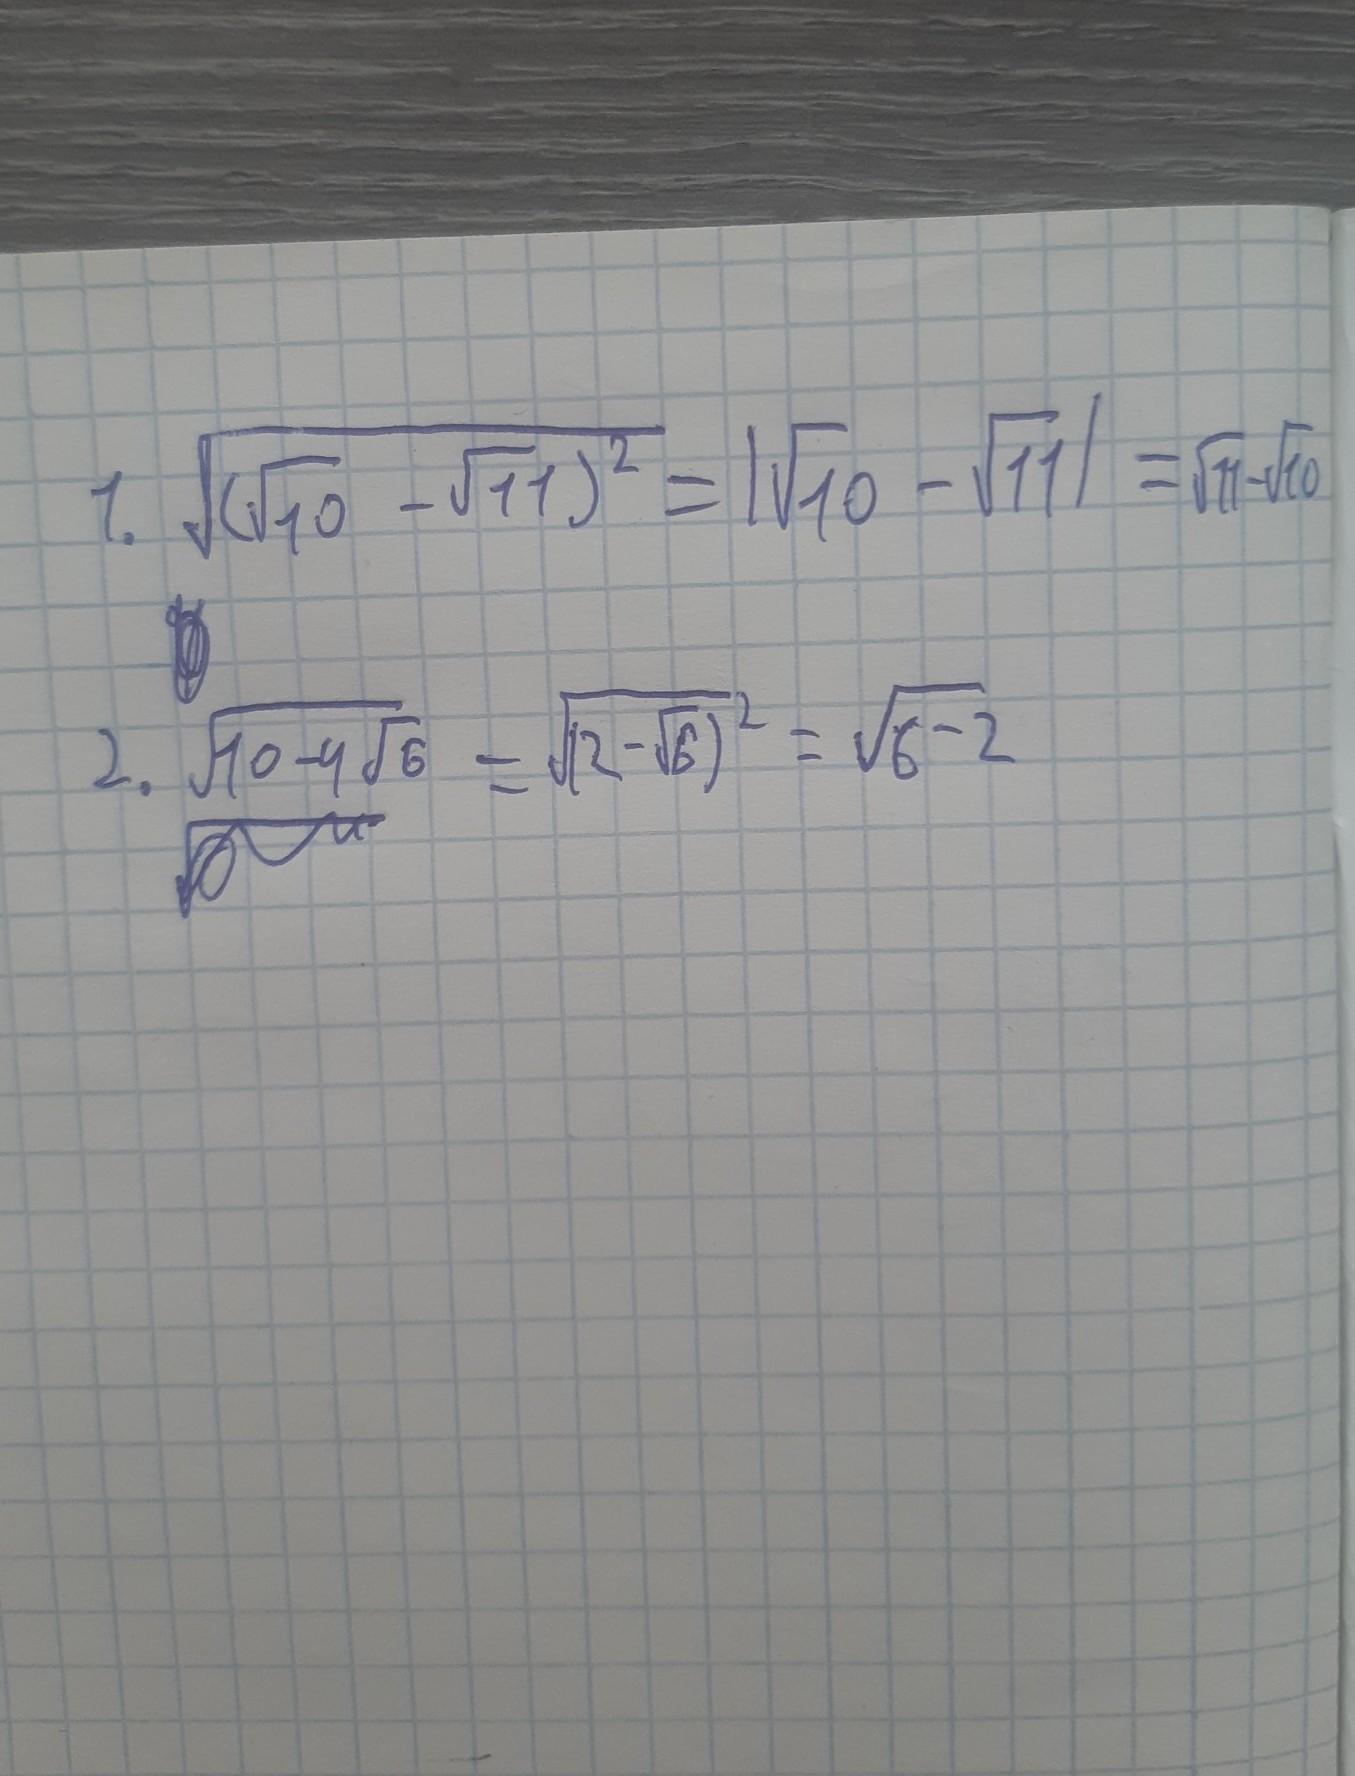 1. √((√10 - √11)²) = |√10 - √11| = √11-√10
2. √(10-4√6) = √((2-√6)²) = √6-2